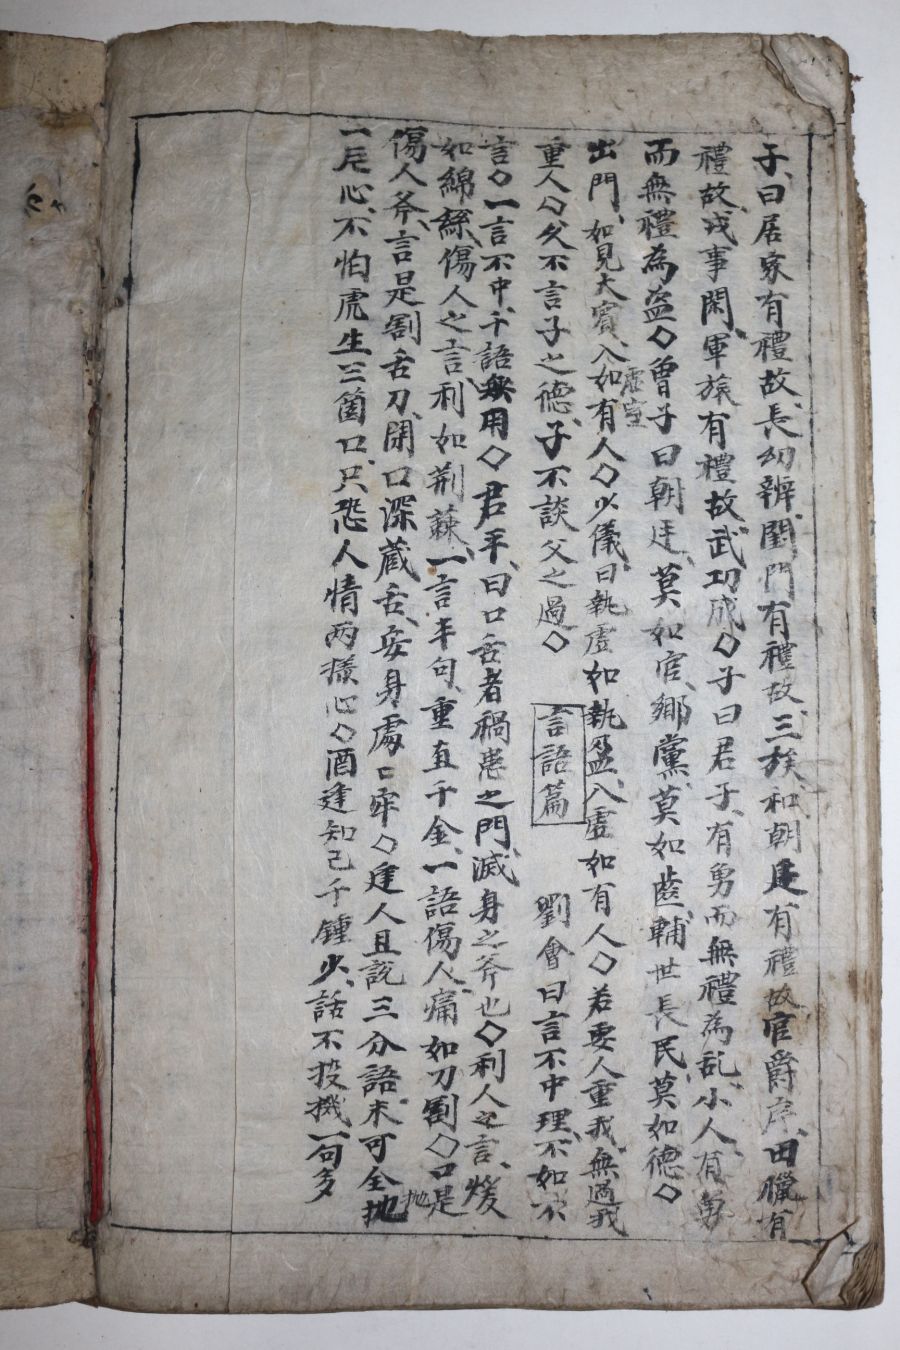 子曰居家有禮故長幼辨閨門有禮故三族和朝廷有禮故官爵序田獵有
禮故戎事閑軍旅有禮故武功成◇子曰君子有勇而無禮為乱小人有勇
而無禮為盗◇曾子曰朝廷莫如官鄉黨莫如齒輔世長民莫如德◇
出門如見大賓入如有人◇少儀曰執虛如執盈入虛如有人◇若要人重我無過我
虛室
重人◇父不言子之德子不談父之過◇ 言語篇 劉會曰言不中理不如不
言◇一言不中千語無用◇君平曰口舌者禍患之門滅身之斧也◇利人之言煖
如綿絲傷人之言利如荆棘一言半句重直千金一語傷人痛如刀割◇口是
傷人斧言是割舌刀閉口深藏舌安身處口牢◇逢人且説三分語未可全抛
抛
一片心不怕虎生三箇口只恐人情两樣心◇酒逢知己千鍾少話不投機一句多